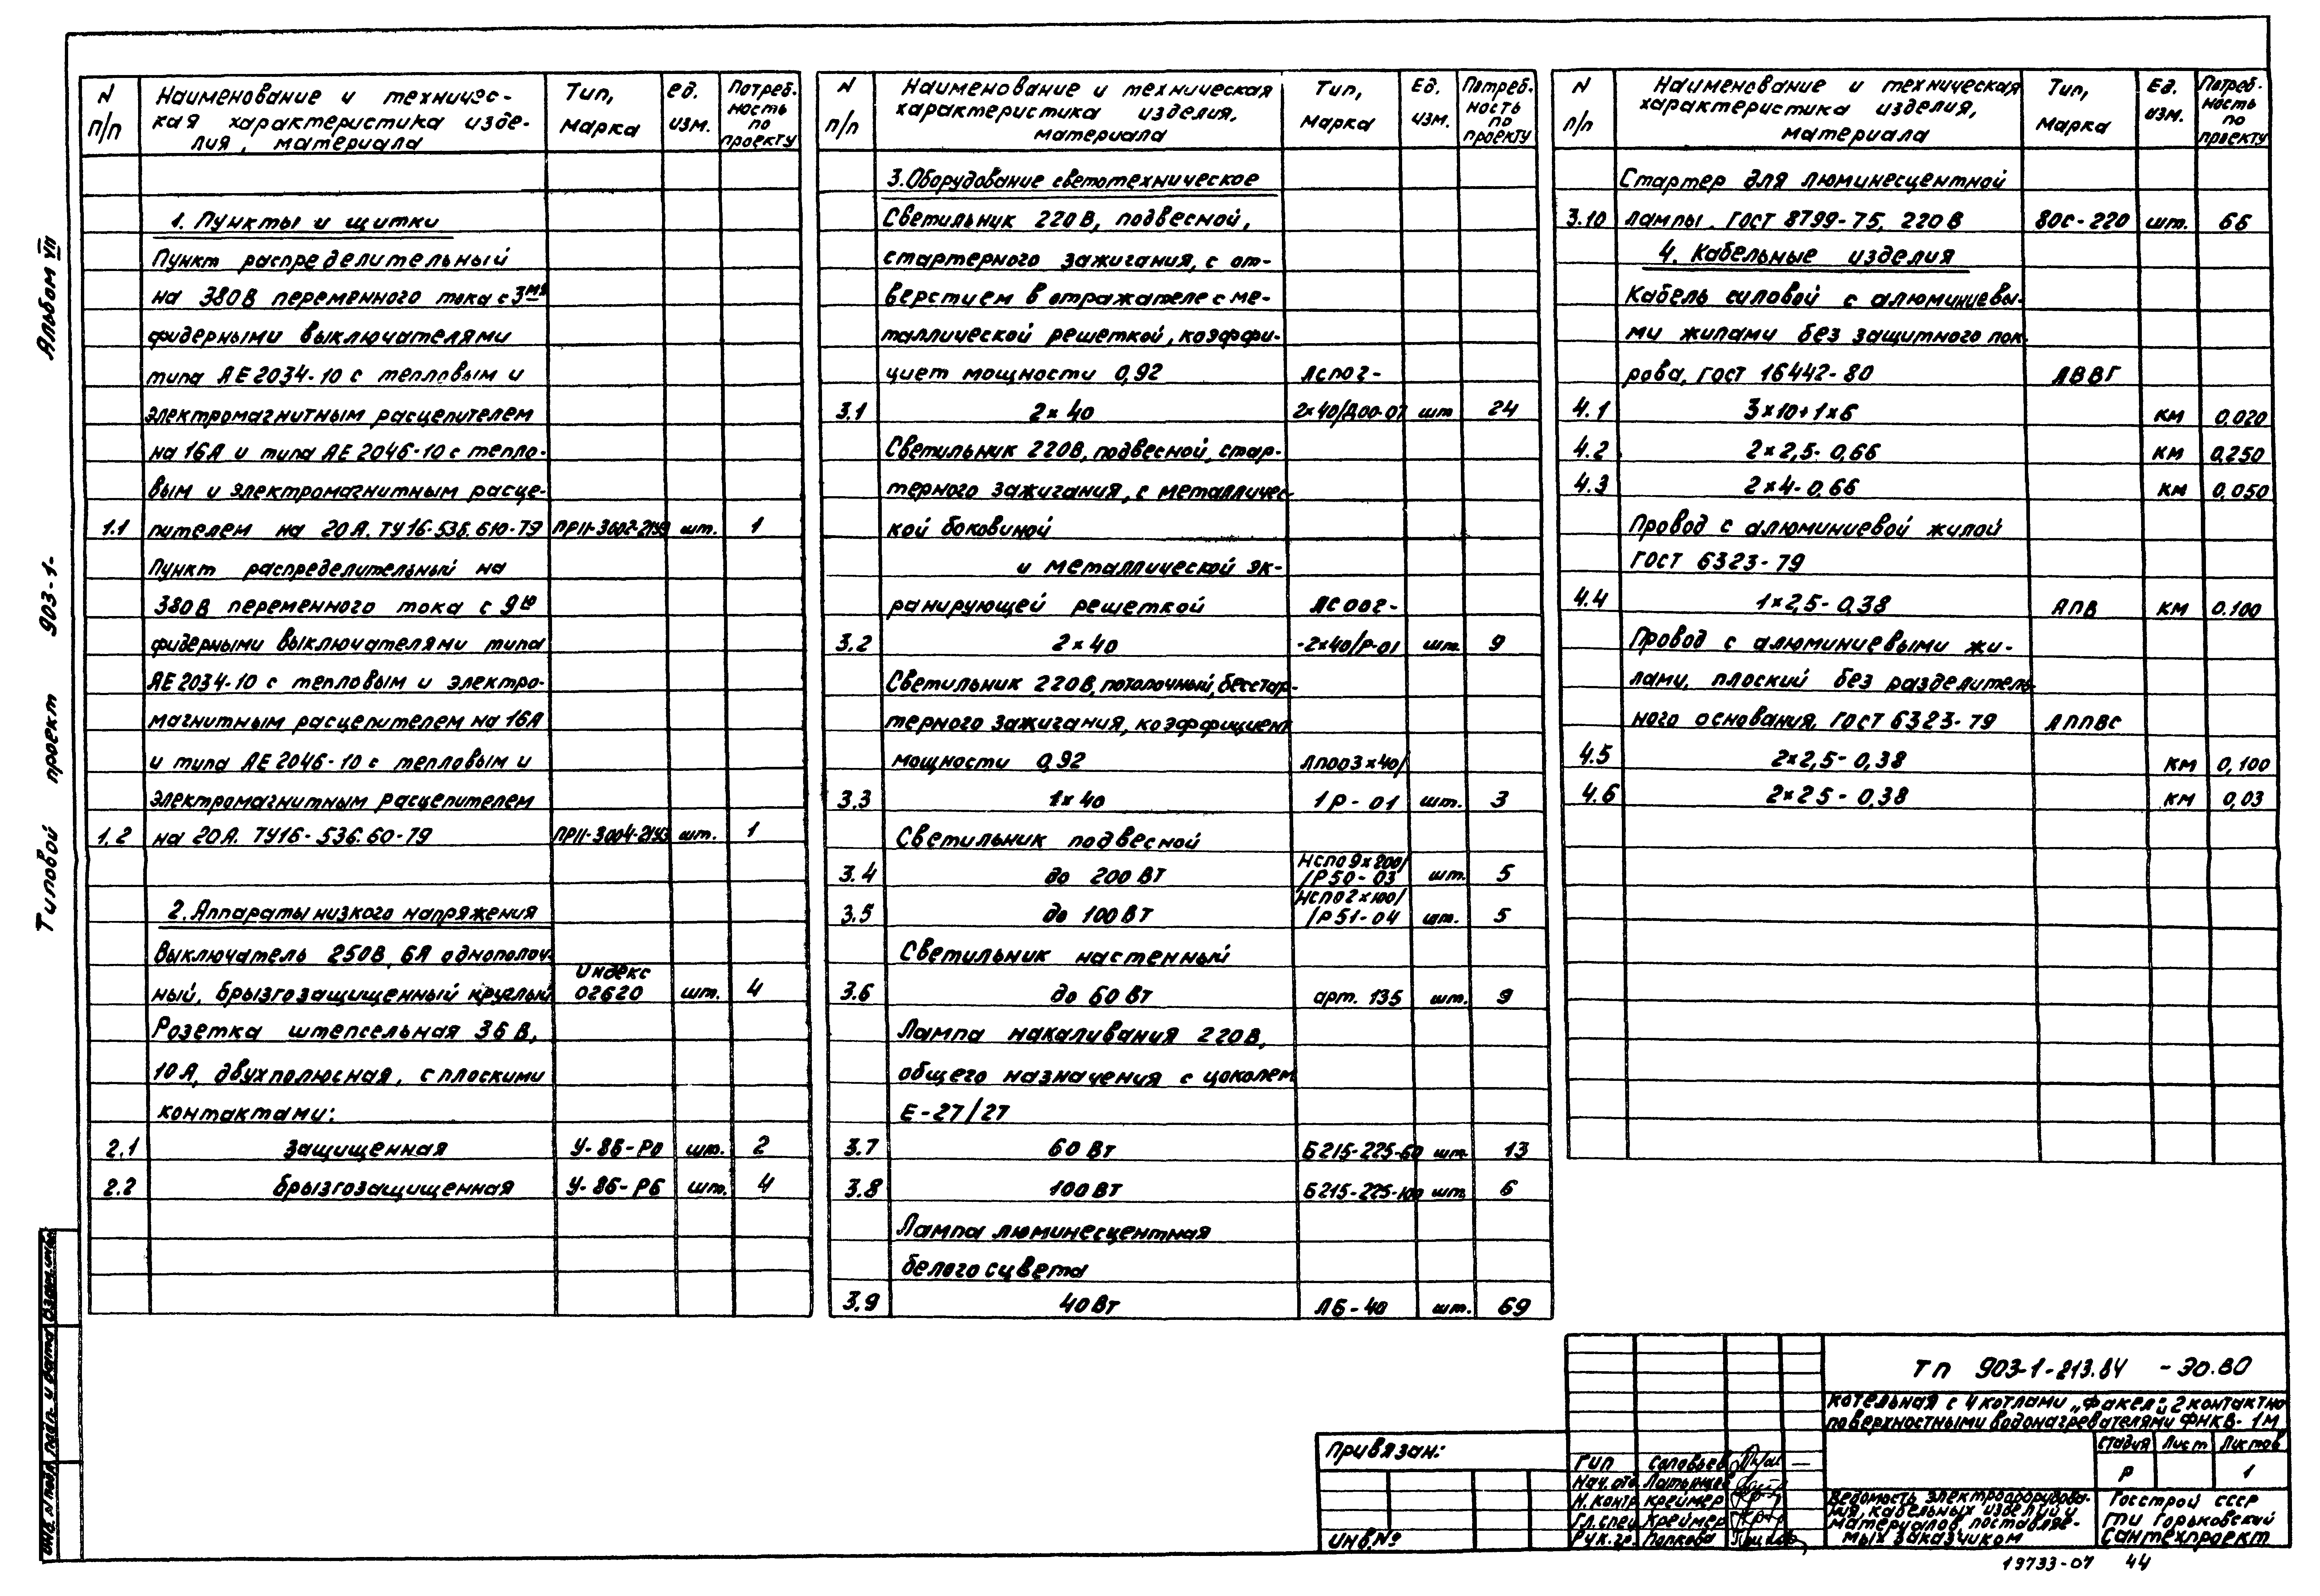 Альбом VII
Типовой проект 903-1-
N п/п
Наименование и техничес-
кая характеристика изде-
лия, материала
Тип, марка
ед. изм.
Потреб-
ность
по
проекту
1. Пункты и щитки
Пункт распределительный
на 380В переменного тока с 3мя
фидерными выключателями
типа АЕ2034-10 с тепловым и
электромагнитным расцепителем
на 16А и типа АЕ2046-10 с тепло-
вым и электромагнитным расце-
1.1 пителем на 20А. ТУ16-536.610-79 ПР11-3002-21У3 шт. 1
Пункт распределительный на
380В переменного тока с 9ю
фидерными выключателями типа
АЕ2034-10 с тепловым и электро-
магнитным расцепителем на 16А
и типа АЕ2046-10 с тепловым и
электромагнитным расцепителем
1.2 на 20А. ТУ16-536.60-79 ПР11-3004-21У3 шт. 1
2. Аппараты низкого напряжения
Выключатель 250В, 6А однополюч-
Индекс
ный, брызгозащищенный круглый 02620 шт. 4
Розетка штепсельная 36В,
10А, двухполюсная, с плоскими
контактами:
2.1 защищенная У-86-Р0 шт. 2
2.2 брызгозащищенная У-86-РБ шт. 4
N п/п
Наименование и техническая
характеристика изделия,
материала
Тип, марка
Ед. изм.
Потреб-
ность
по
проекту
3. Оборудование светотехническое
Светильник 220В, подвесной,
стартерного зажигания, с от-
верстием в отражателе с ме-
таллической решеткой, коэффи-
циет мощности 0,92 ЛСП02-
3.1 2×40 2×40/Д00-07 шт 24
Светильник 220В, подвесной, стар-
терного зажигания, с металличес-
кой боковиной
и металлической эк-
ранирующей решеткой ЛСО02-
3.2 2×40 -2×40/Р-01 шт. 9
Светильник 220В, потолочный, бесстар-
терного зажигания, коэффициент
мощности 0,92 ЛПО03×40/
3.3 1×40 1Р-01 шт. 3
Светильник подвесной
НСП09×200/
3.4 до 200 Вт /Р50-03 шт. 5
НСП02×100/
3.5 до 100 Вт /Р51-04 шт. 5
Светильник настенный
3.6 до 60 Вт арт. 135 шт. 9
Лампа накаливания 220В,
общего назначения с цоколем
Е-27/27
3.7 60 Вт Б215-225-60 шт. 13
3.8 100 Вт Б215-225-100 шт. 6
Лампа люминесцентная
белого сцвета
3.9 40 Вт ЛБ-40 шт. 69
N п/п
Наименование и техническая
характеристика изделия,
материала
Тип, марка
Ед. изм.
Потреб-
ность
по
проекту
Стартер для люминесцентной
3.10 лампы. ГОСТ 8799-75, 220В 80С-220 шт. 66
4. Кабельные изделия
Кабель силовой с алюминиевы-
ми жилами без защитного пок
рова, ГОСТ 16442-80 АВВГ
4.1 3×10+1×6 км 0.020
4.2 2×2,5-0,66 км 0,250
4.3 2×4-0.66 км 0,050
Провод с алюминиевой жилой
ГОСТ 6323-79
4.4 1×2,5-0,38 АПВ км 0.100
Провод с алюминиевыми жи-
лами, плоский без разделитель
ного основания, ГОСТ 6323-79 АППВС
4.5 2×2,5-0,38 км 0,100
4.6 2×25-0,38 км 0,03
ТП 903-1-213.84 -ЭО.ВО
Котельная с 4 котлами „Факел", 2 контактно
поверхностными водонагревателями ФНКВ-1М
Стадия Лист Листов
Р 1
Ведомость электрооборудова-
ния, кабельных изделий и
материалов поставляе-
мых заказчиком
Госстрой СССР
ГПИ Горьковский
Сантехпроект
ГИП Соловьев
Нач. отд.
Н. контр Креймер
Гл. спец Креймер
Рук. гр. Попкова
Привязан:
Инв.№
Инв. N подл. Подп. и дата Взам. инв.
19733-07 44